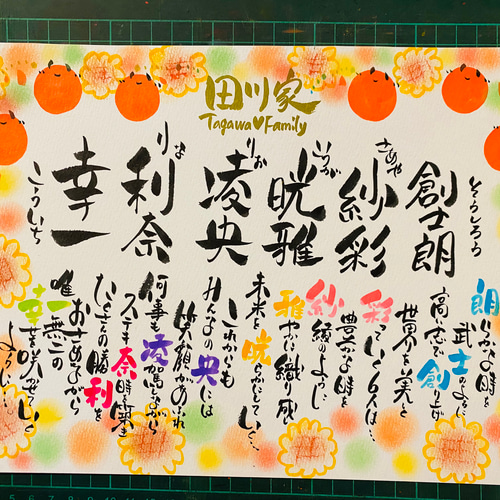 田川家
Tagawa♥Family
そうしろう
創士朗
さあや
紗彩
いつが
晄雅
りお
凌央
りな
利奈
こういち
幸一
朗らかな時も
武士のように
高い志で創り上げ
世界を美しく
彩っていく6人は…
豊かな時を
紗綾のように
雅やかに織り成し
未来を晄らかしていく。
これからも
みんなの央には
笑顔があふれ
何事も凌駕しながら
ステキな奈時を築き
むっとの勝利を
おさめながら
唯一無二の
幸せを咲かせていく